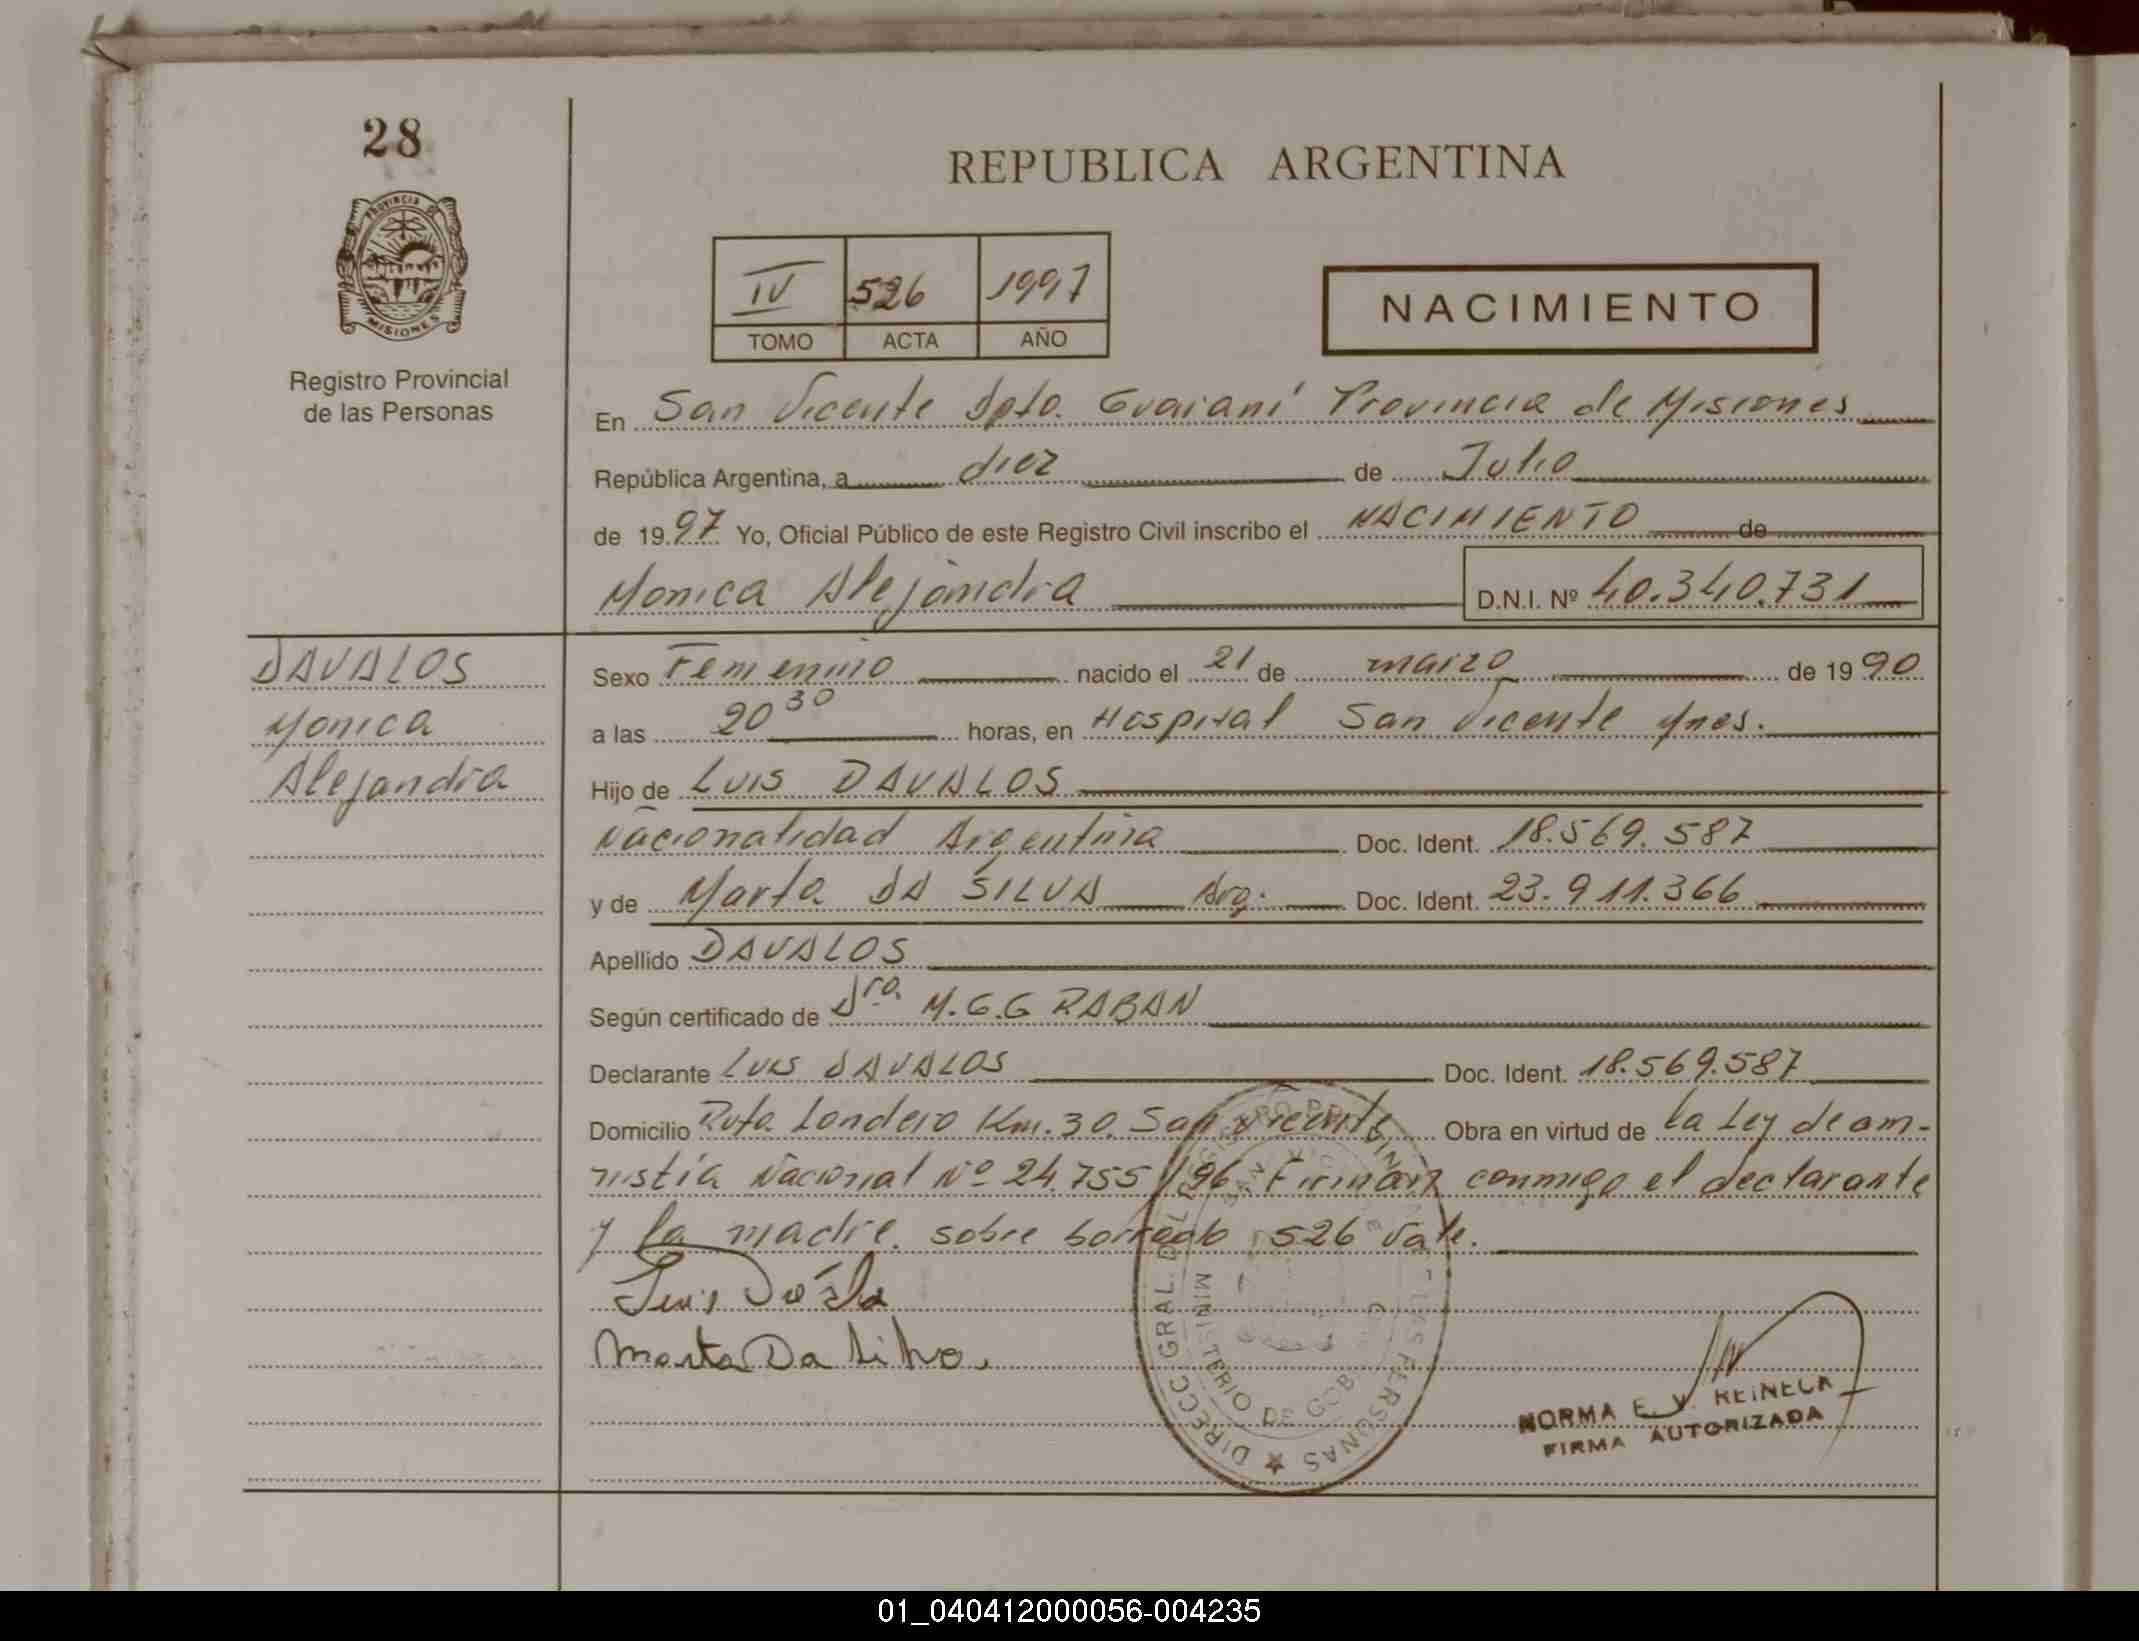 28
REPUBLICA ARGENTINA
PROVINCIA DE
MISIONES
IV 526 1997
TOMO ACTA AÑO
NACIMIENTO
Registro Provincial
de las Personas
En San Vicente Dpto. Guaraní Provincia de Misiones
República Argentina, a diez de Julio
de 1997 Yo, Oficial Público de este Registro Civil inscribo el NACIMIENTO de
Monica Alejandra D.N.I. Nº 40.340.731
DAVALOS
Monica
Alejandra
Sexo Femenino nacido el 21 de marzo de 1990
a las 20 30 horas, en Hospital San Vicente Mnes.
Hijo de Luis DAVALOS
Nacionalidad Argentina Doc. Ident. 18.569.587
y de Marta DA SILVA Arg. Doc. Ident. 23.911.366
Apellido DAVALOS
Según certificado de Dra. M.G.G RABAN
Declarante Luis DAVALOS Doc. Ident. 18.569.587
Domicilio Ruta Londero Km.30. San Vicente Obra en virtud de la Ley de am-
nistía Nacional Nº 24.755/96. Firman conmigo el declarante
y la madre. sobre borrado 526 Vale.
Luis
Marta Da Silva.
DIRECC. GRAL. DEL REGISTRO PROVINCIAL DE LAS PERSONAS
MINISTERIO DE GOBIERNO
SAN VICENTE
NORMA E. V.
FIRMA AUTORIZADA
01_040412000056-004235